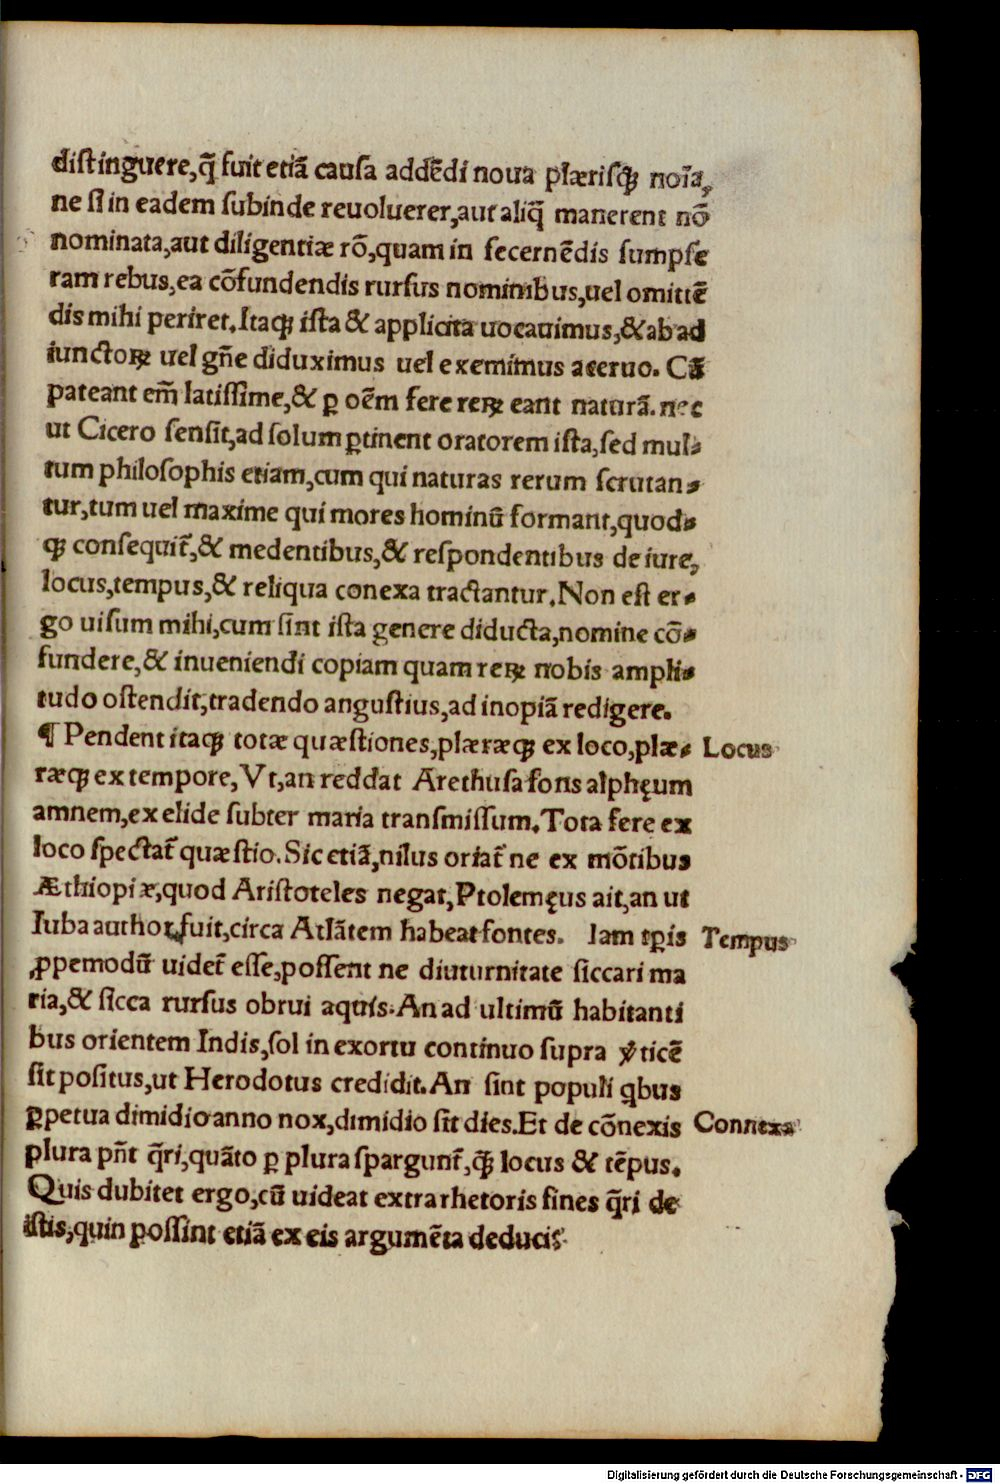 distinguere,q̃ fuit etiã causa addẽdi noua plærisq; noĩa,
ne si in eadem subinde reuoluerer,aut aliq̃ manerent nõ
nominata,aut diligentiæ rõ,quam in secernẽdis sumpse
ram rebus,ea cõfundendis rursus nominibus,uel omittẽ
dis mihi periret.Itaq; ista & applicita uocauimus,& ab ad
iunctoꝝ uel gñe diduximus uel exemimus aceruo. Cũ
pateant em̃ latissime,& ꝑ oẽm fere reꝝ eant naturã. nec
ut Cicero sensit,ad solum ꝑtinent oratorem ista,sed mul-
tum philosophis etiam,cum qui naturas rerum scrutan-
tur,tum uel maxime qui mores hominũ formant,quod-
q; consequit̃,& medentibus,& respondentibus de iure,
locus,tempus,& reliqua conexa tractantur.Non est er-
go uisum mihi,cum sint ista genere diducta,nomine cõ-
fundere,& inueniendi copiam quam reꝝ nobis ampli-
tudo ostendit,tradendo angustius,ad inopiã redigere.
¶ Pendent itaq; totæ quæstiones,plæræq; ex loco,plæ- Locus
ræq; ex tempore,Vt,an reddat Arethusa fons alphęum
amnem,ex elide subter maria transmissum.Tota fere ex
loco spectat̃ quæstio.Sic etiã,nilus oriat̃ ne ex mõtibus
Æthiopiæ,quod Aristoteles negat,Ptolemęus ait,an ut
Iuba author fuit,circa Atlãtem habeat fontes. Iam tꝑis Tempus
ꝓpemodũ uidet̃ esse,possent ne diuturnitate siccari ma
ria,& sicca rursus obrui aquis.An ad ultimũ habitanti
bus orientem Indis,sol in exortu continuo supra ꝟticẽ
sit positus,ut Herodotus credidit.An sint populi qbus
ꝑpetua dimidio anno nox,dimidio sit dies.Et de cõnexis Connexa
plura pñt q̃ri,quãto ꝑ plura spargunt̃,q̃ꝫ locus & tẽpus.
Quis dubitet ergo,cũ uideat extra rhetoris fines q̃ri de
istis,quin possint etiã ex eis argumẽta deduci?
Digitalisierung gefördert durch die Deutsche Forschungsgemeinschaft - DFG